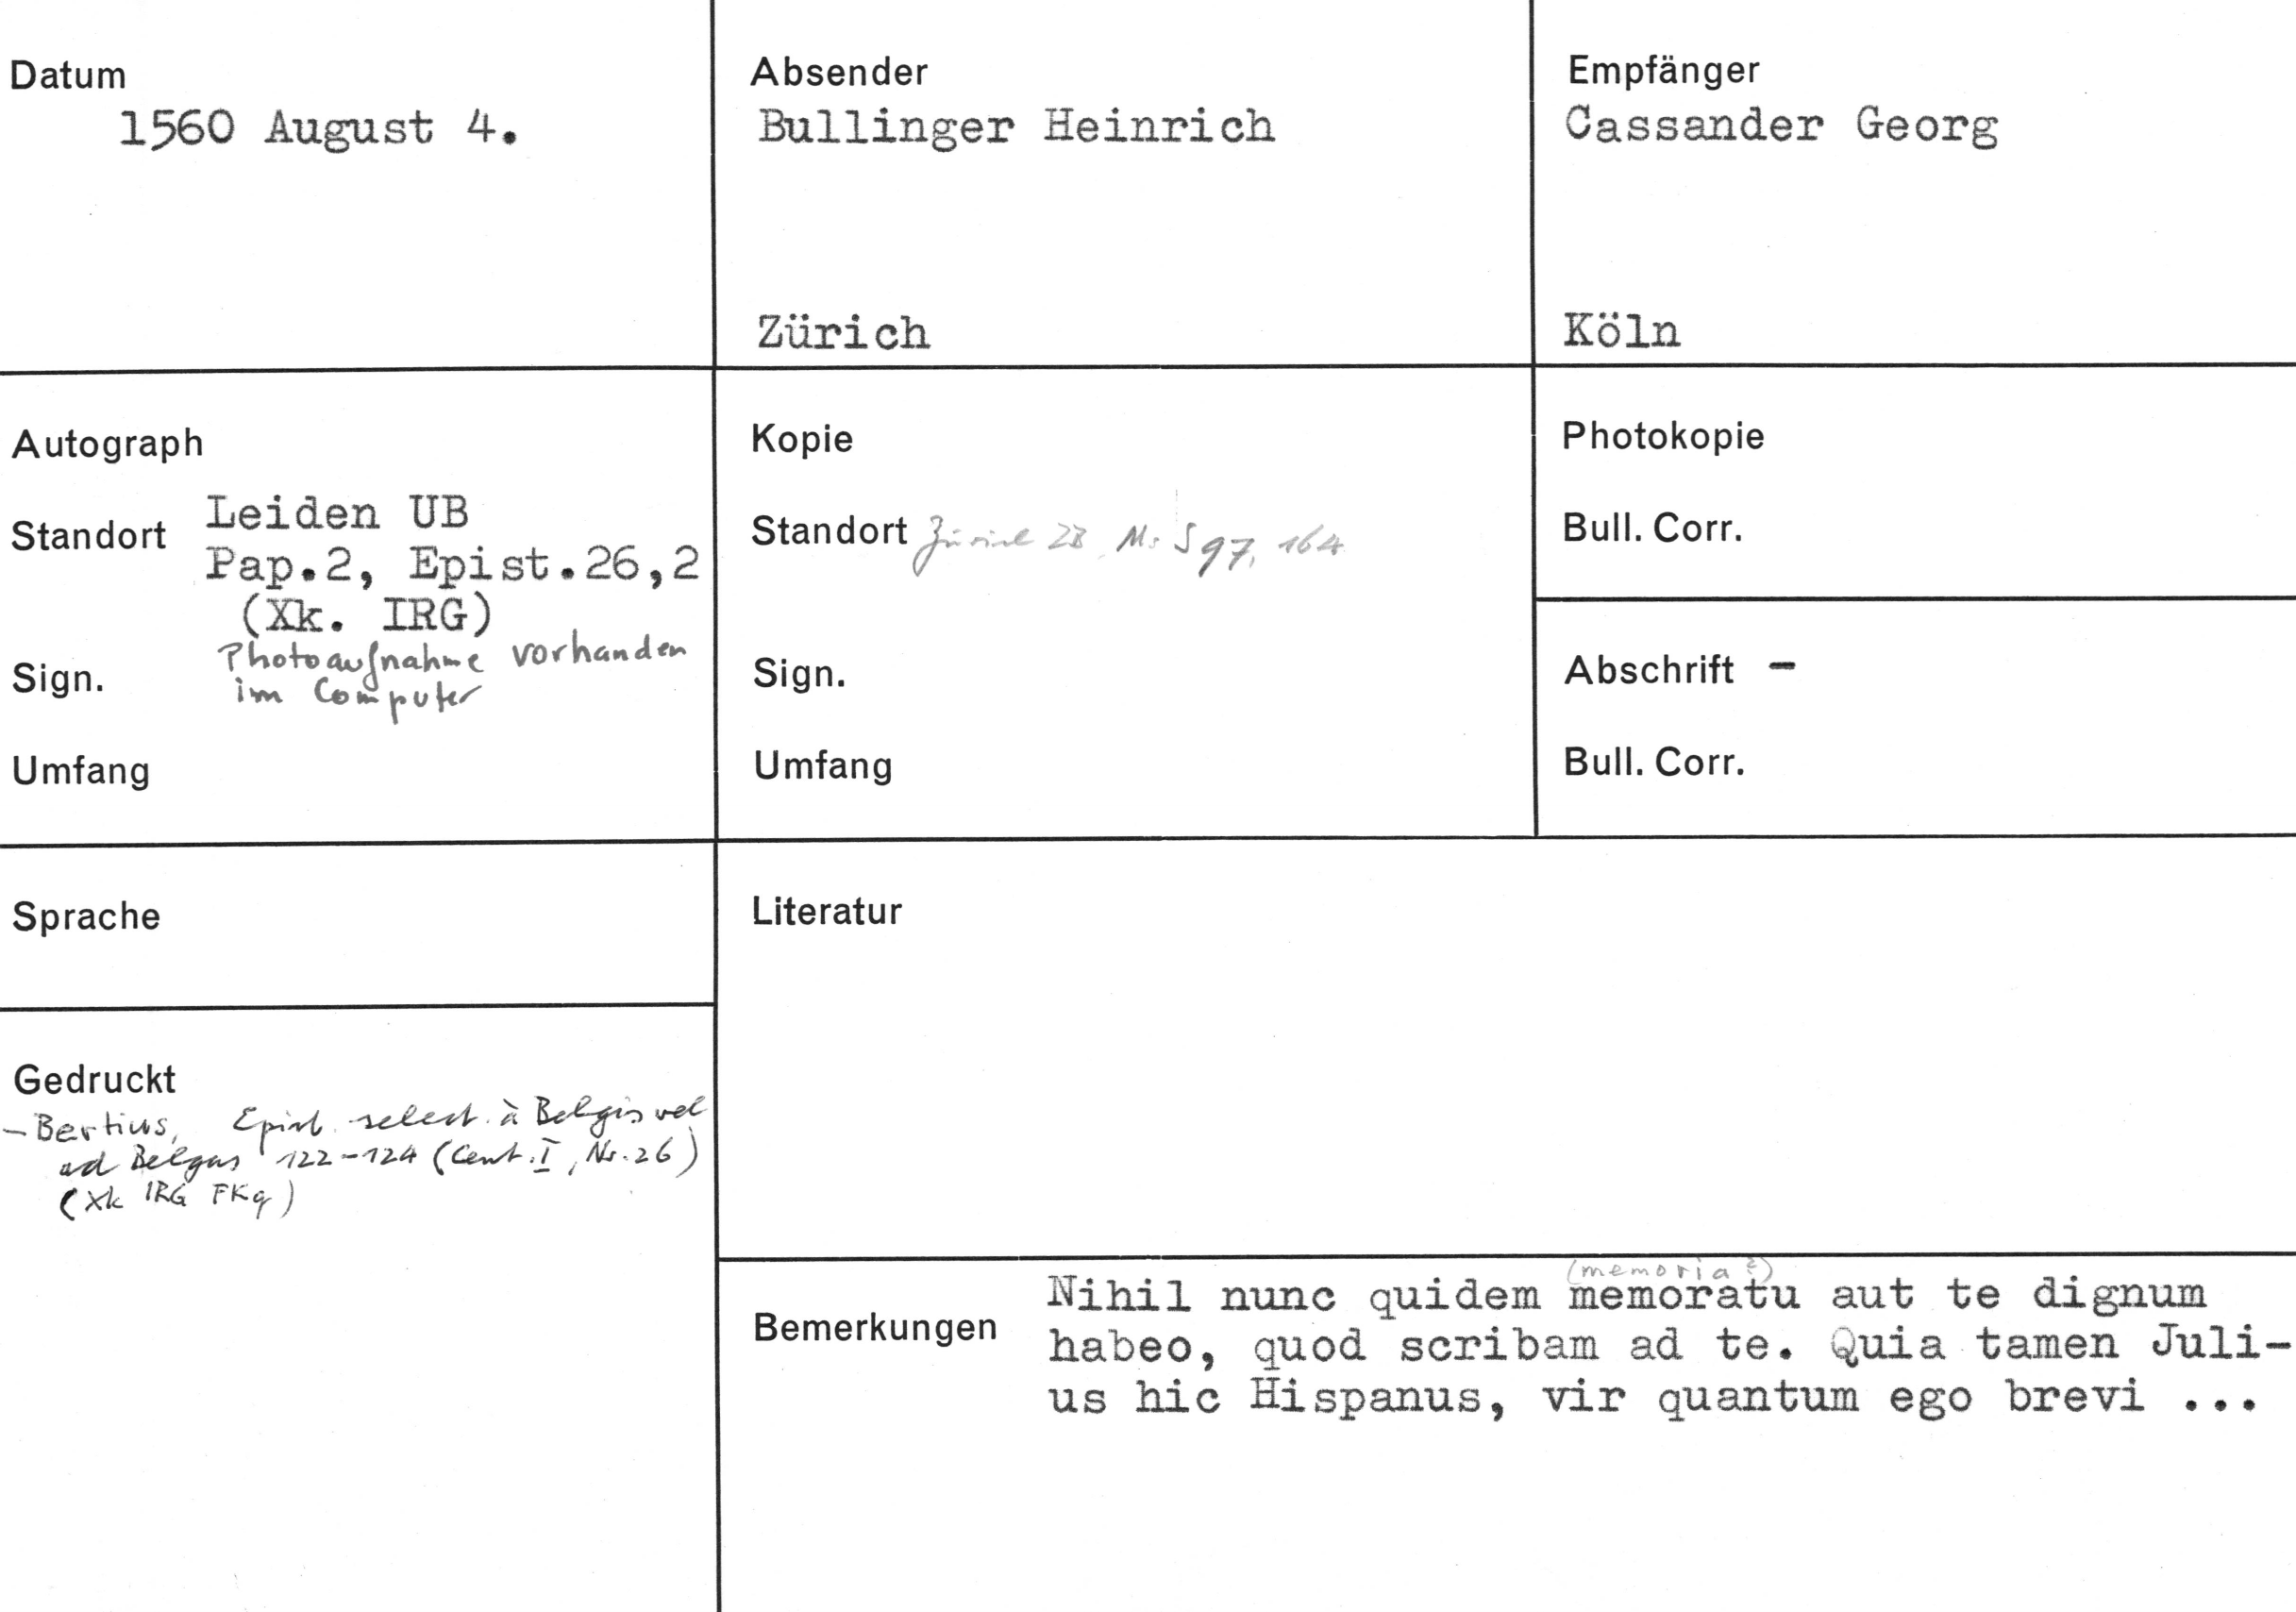 Datum
1560 August 4.
Absender
Bullinger Heinrich
Zürich
Empfänger
Cassander Georg
Köln
Autograph
Standort Leiden UB
Pap.2, Epist.26,2
(Xk. IRG)
Photoaufnahme vorhanden
im Computer
Sign.
Umfang
Kopie
Standort Zürich ZB, Ms S 97, 164
Sign.
Umfang
Photokopie
Bull. Corr.
Abschrift -
Bull. Corr.
Sprache
Literatur
Gedruckt
- Bertius, Epist. select. à Belgis vel
ad Belgas 122-124 (Cent. I, Nr. 26)
(Xk IRG FKq)
Bemerkungen
(memoria?)
Nihil nunc quidem memoratu aut te dignum
habeo, quod scribam ad te. Quia tamen Juli-
us hic Hispanus, vir quantum ego brevi ...